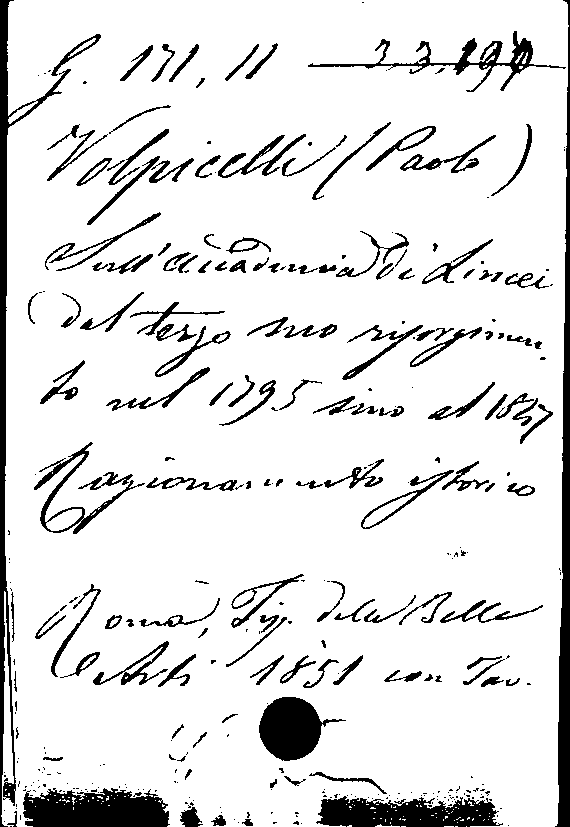 G. 171, 11 3.3.19
Volpicelli (Paolo)
Sull'Accademia di Lincei
dal terzo suo risorgimen-
to nel 1795 sino al 1847
Ragionamento istorico
Roma, Tip. delle Belle
Arti 1851 con Tav.